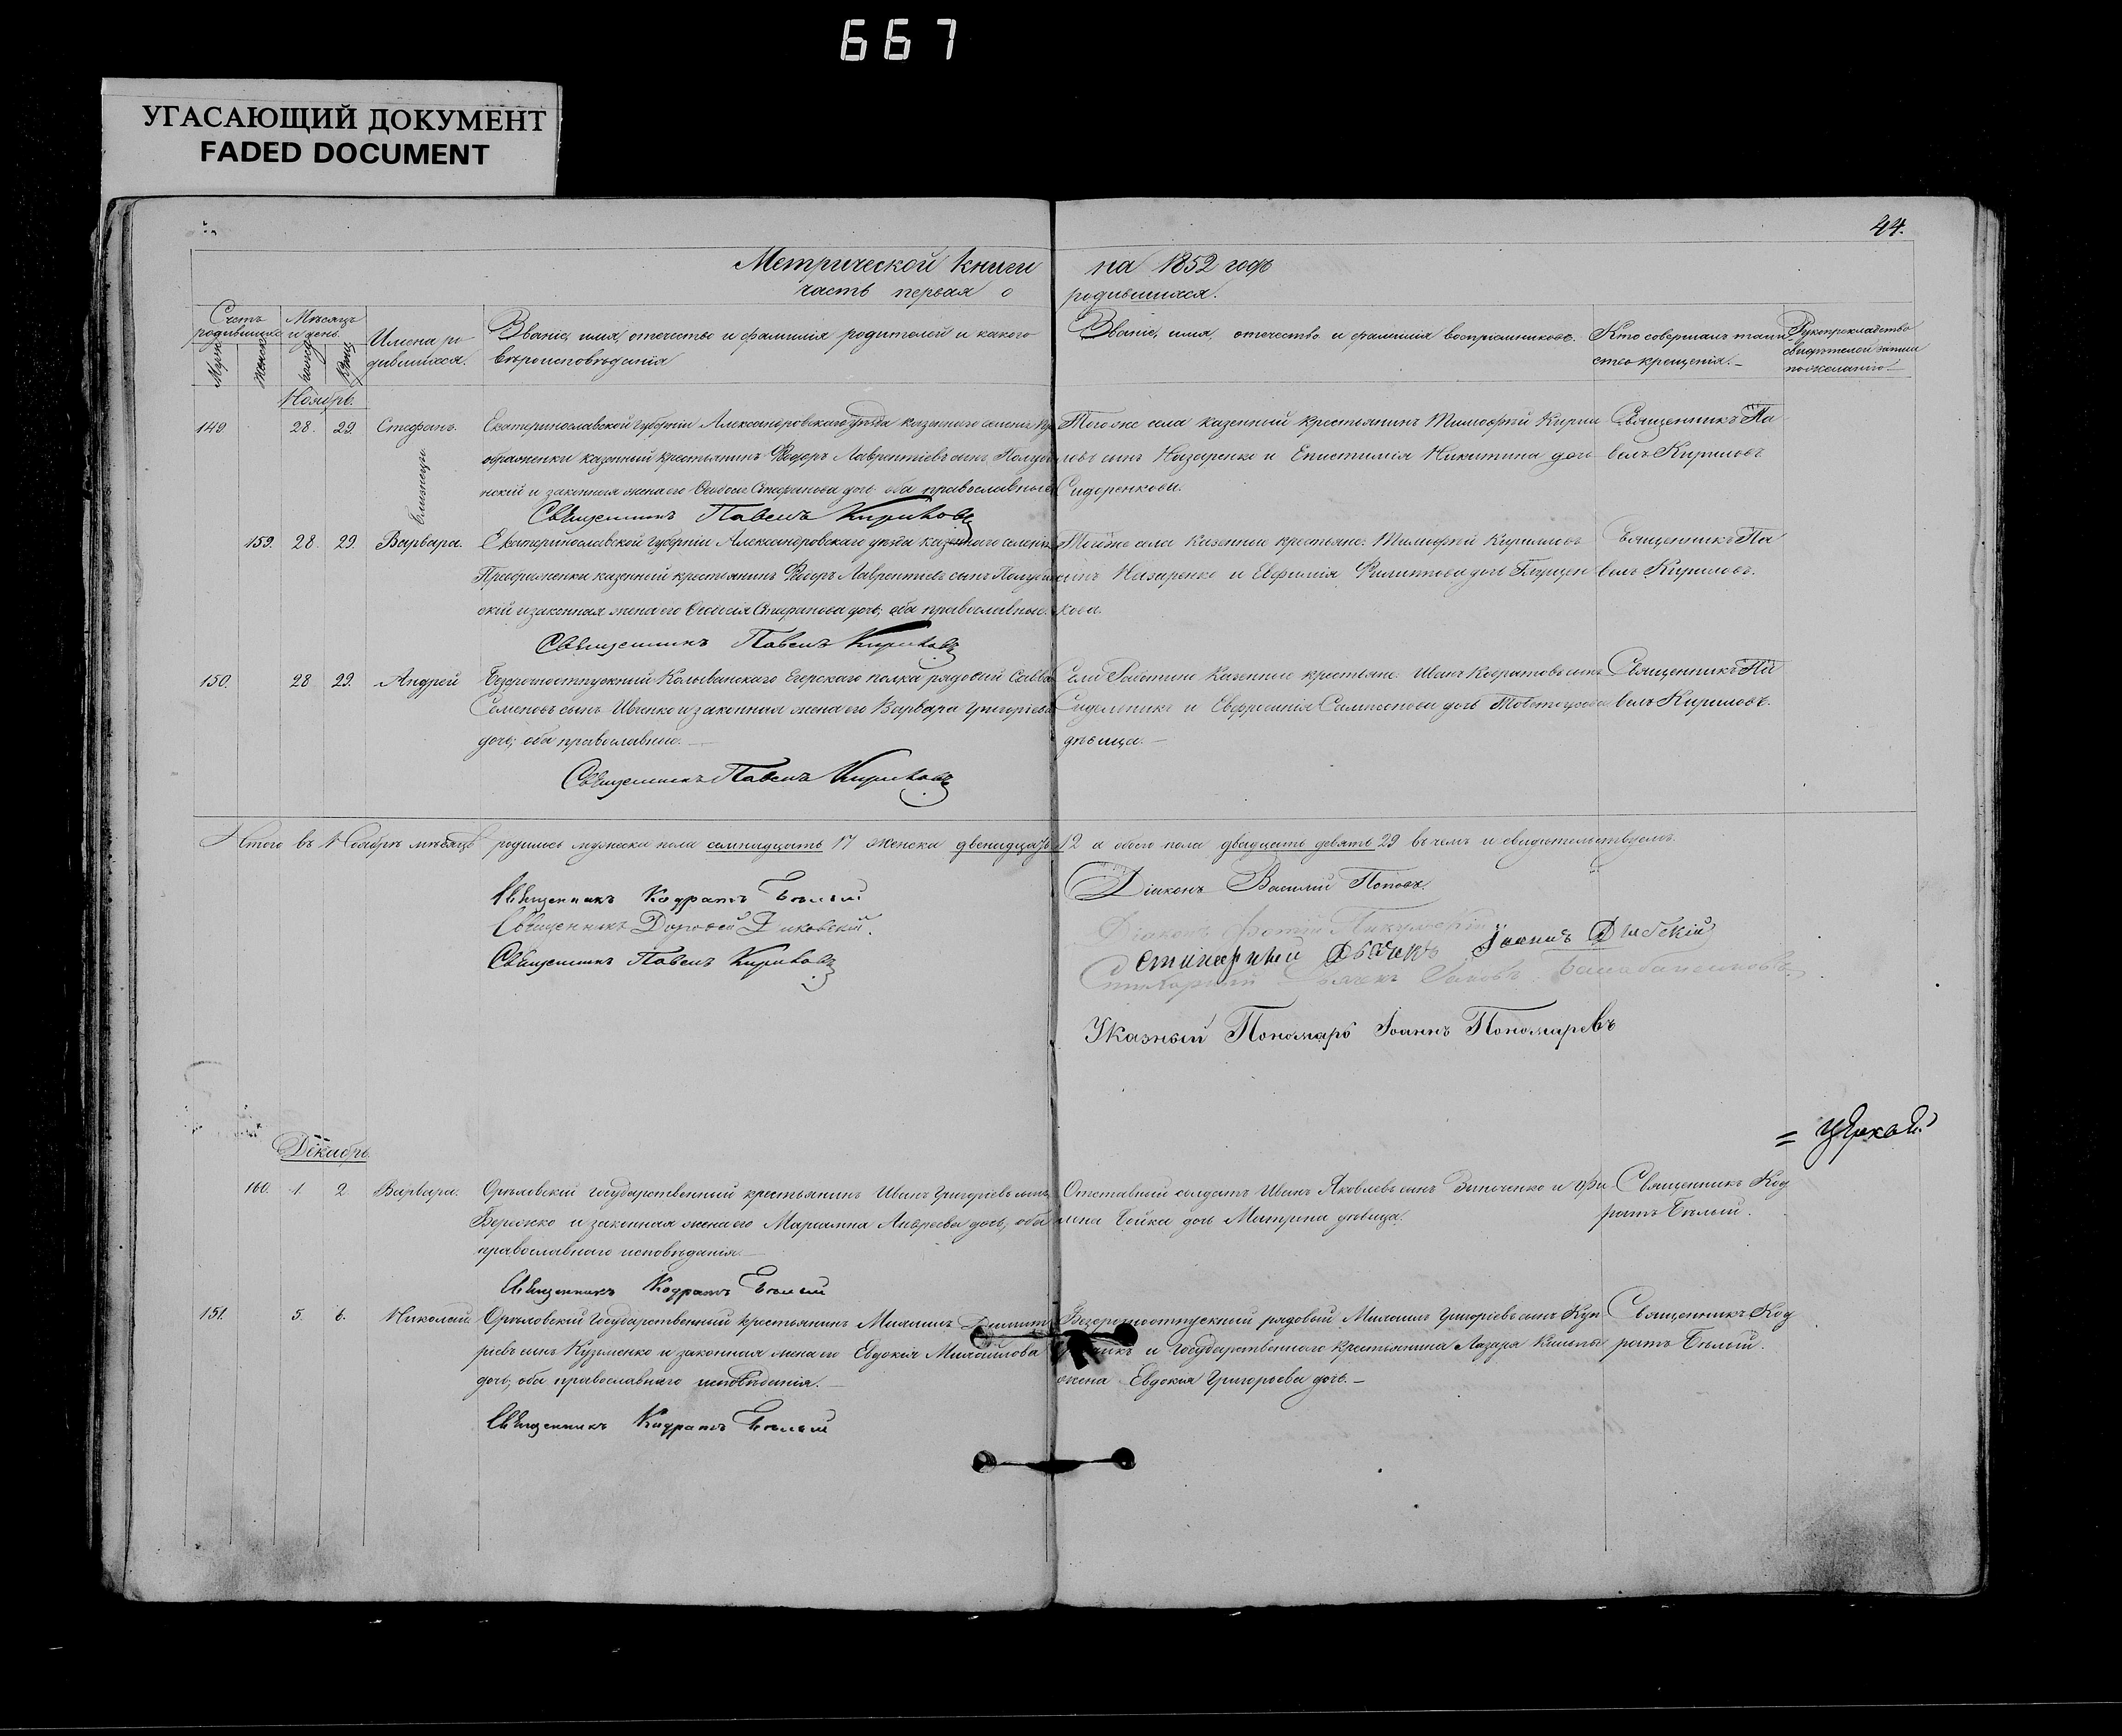 667
УГАСАЮЩИЙ ДОКУМЕНТ
FADED DOCUMENT
44.
Метрической книги на 1852 годъ
часть первая о родившихся.
Счетъ родившихся
Мѣсяцъ и день
Имена родившихся.
Званіе, имя, отечество и фамилія родителей и какого
вѣроисповѣданія
Званіе, имя, отечество и фамилія воспріемниковъ.
Кто совершалъ таин
ство крещенія.
Рукоприкладство
свидѣтелей записи
по желанію
Ноябрь.
149 28. 29. Стефанъ.
близнецы
Екатеринославской Губерніи Александровскаго уѣзда казеннаго селенія Пр
ображенки казенный крестьянинъ Ѳедоръ Лаврентіевъ сынъ
нскій и законная жена его Ѳеодосія Стефанова дочь оба православные
Тогоже села казенный крестьянинъ Тимофей Кирил
ловъ сынъ Назаренко и Епистимія Никитина дочь
Сидоренкова.
Священникъ Па
велъ Кириловъ
Священникъ Павелъ Кириловъ
159. 28. 29. Варвара.
Екатеринославской Губерніи Александровскаго уѣзда казеннаго селенія
Преображенки казенный крестьянинъ Ѳедоръ Лаврентіевъ сынъ
скій и законная жена его Ѳеодосія Стефанова дочь; оба православные.
Тойже села казенные крестьяне: Тимофей Кириловъ
сынъ Назаренко и Евфимія Филиппова дочь
кова.
Священникъ Па
велъ Кириловъ.
Священникъ Павелъ Кириловъ
150. 28 29. Андрей
Безсрочноотпускный Колыванскаго Егерскаго полка рядовый Савва
Семеновъ сынъ Ивченко и законная жена его Варвара Григоріева
дочь; оба православные.
Села казенные крестьяне: Иванъ Кодратовъ сынъ
Сидельникъ и Евфросинія Сампсонова дочь
дѣвица.
Священникъ Па
велъ Кириловъ.
Священникъ Павелъ Кириловъ
Итого въ Ноябрѣ мѣсяцѣ родилось мужеска пола семнадцать 17 женска двенадцать 12 а обоего пола двадцать девять 29 въ чемъ и свидѣтельствуемъ.
Священникъ Кодратъ Бѣлый
Священникъ Дорофей
Священникъ Павелъ Кириловъ
Діаконъ Василій Поповъ.
Діаконъ Фотій
Стихарный Дьячекъ Іоаннъ
Стихарный Дьячекъ
Указный Пономарь Іоаннъ Пономаревъ
Декабрь.
160. 1. 2. Варвара.
Орѣховскій государственный крестьянинъ Иванъ Григоріевъ сынъ
Бережко и законная жена его Маріанна Андреева дочь, оба
православнаго исповѣданія.
Отставный солдатъ Иванъ Яковлевъ сынъ и Фи
липа Бойка дочь Матрона дѣвица.
Священникъ Код
ратъ Бѣлый.
Священникъ Кодратъ Бѣлый
151. 5. 6. Николай
Орѣховскій Государственный крестьянинъ Михаилъ Димит
ріевъ сынъ Кузменко и законная жена его Евдокія Михайлова
дочь, оба православнаго исповѣданія.
Безсрочноотпускный рядовый Михаилъ Григоріевъ сынъ
и Государственнаго крестьянина Лазаря
жена Евдокія Григорьева дочь.
Священникъ Код
ратъ Бѣлый.
Священникъ Кодратъ Бѣлый